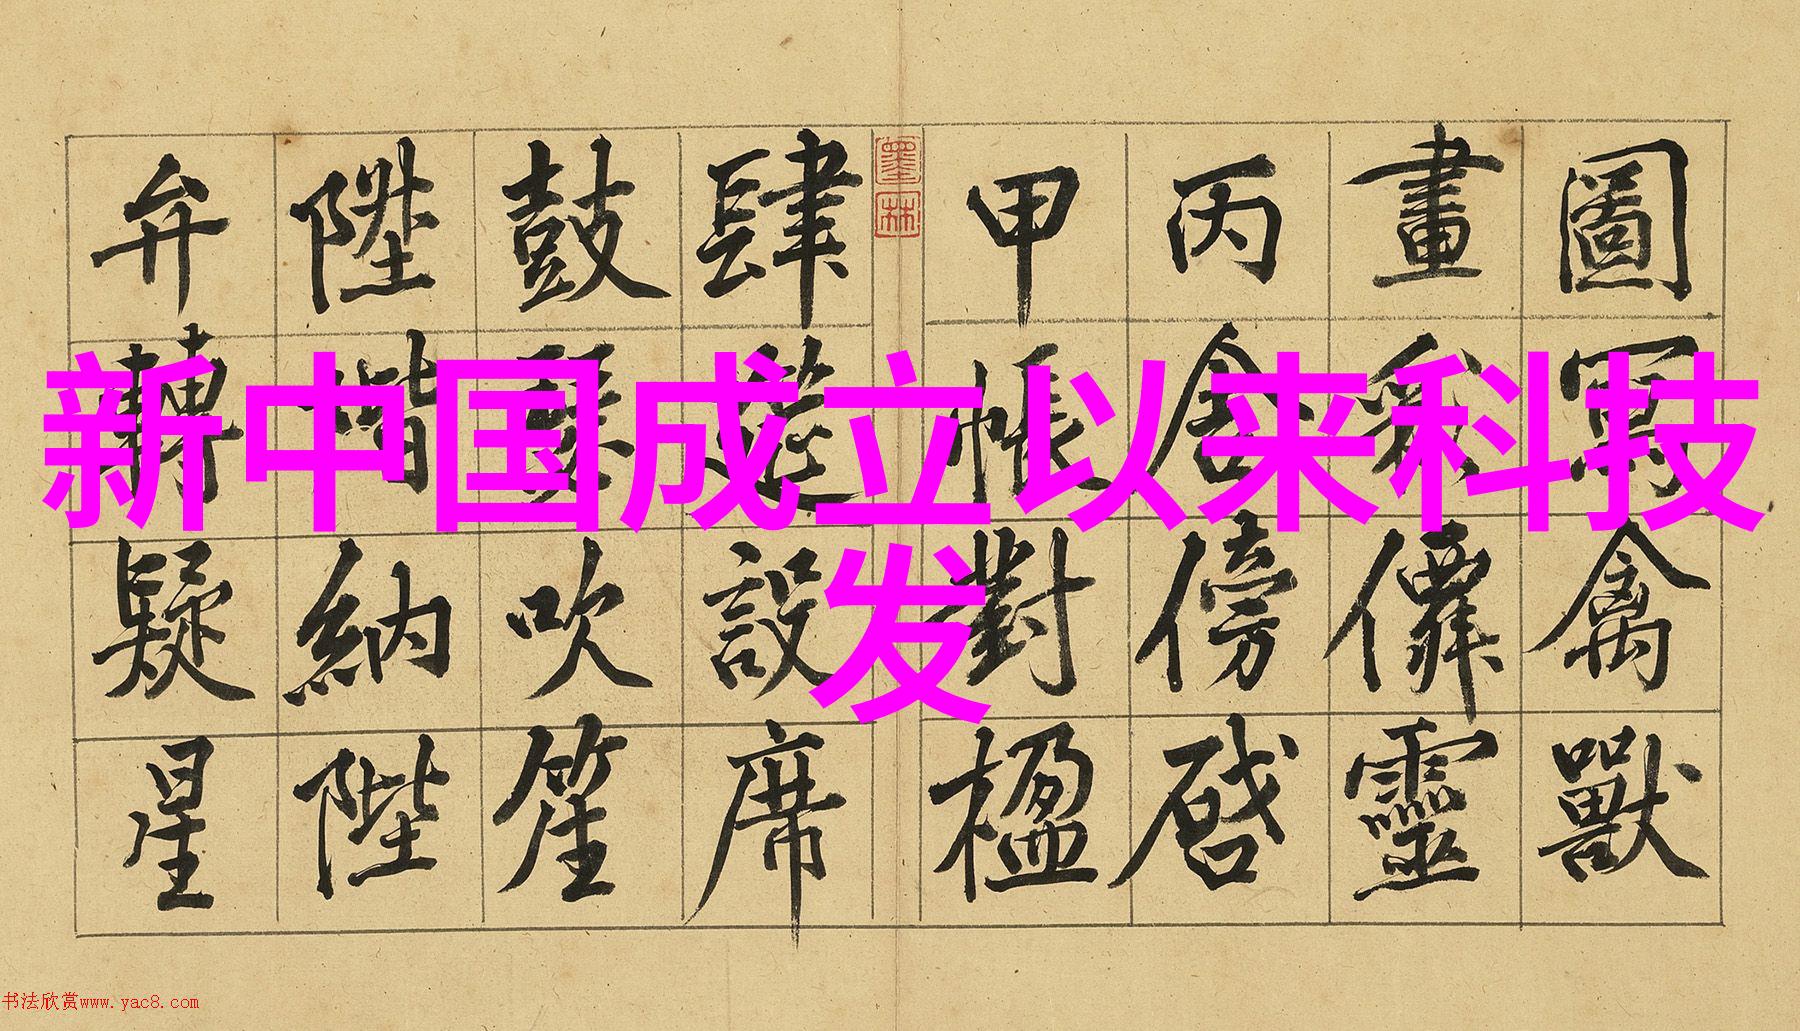 新中国成立以来科技
发
圖寫禽獸
畫彩僊靈
丙舍傍啓
甲帳對楹
墨林
肆筵設席
鼓瑟吹笙
陞階納陛
弁轉疑星
书法欣赏www.yac8.com